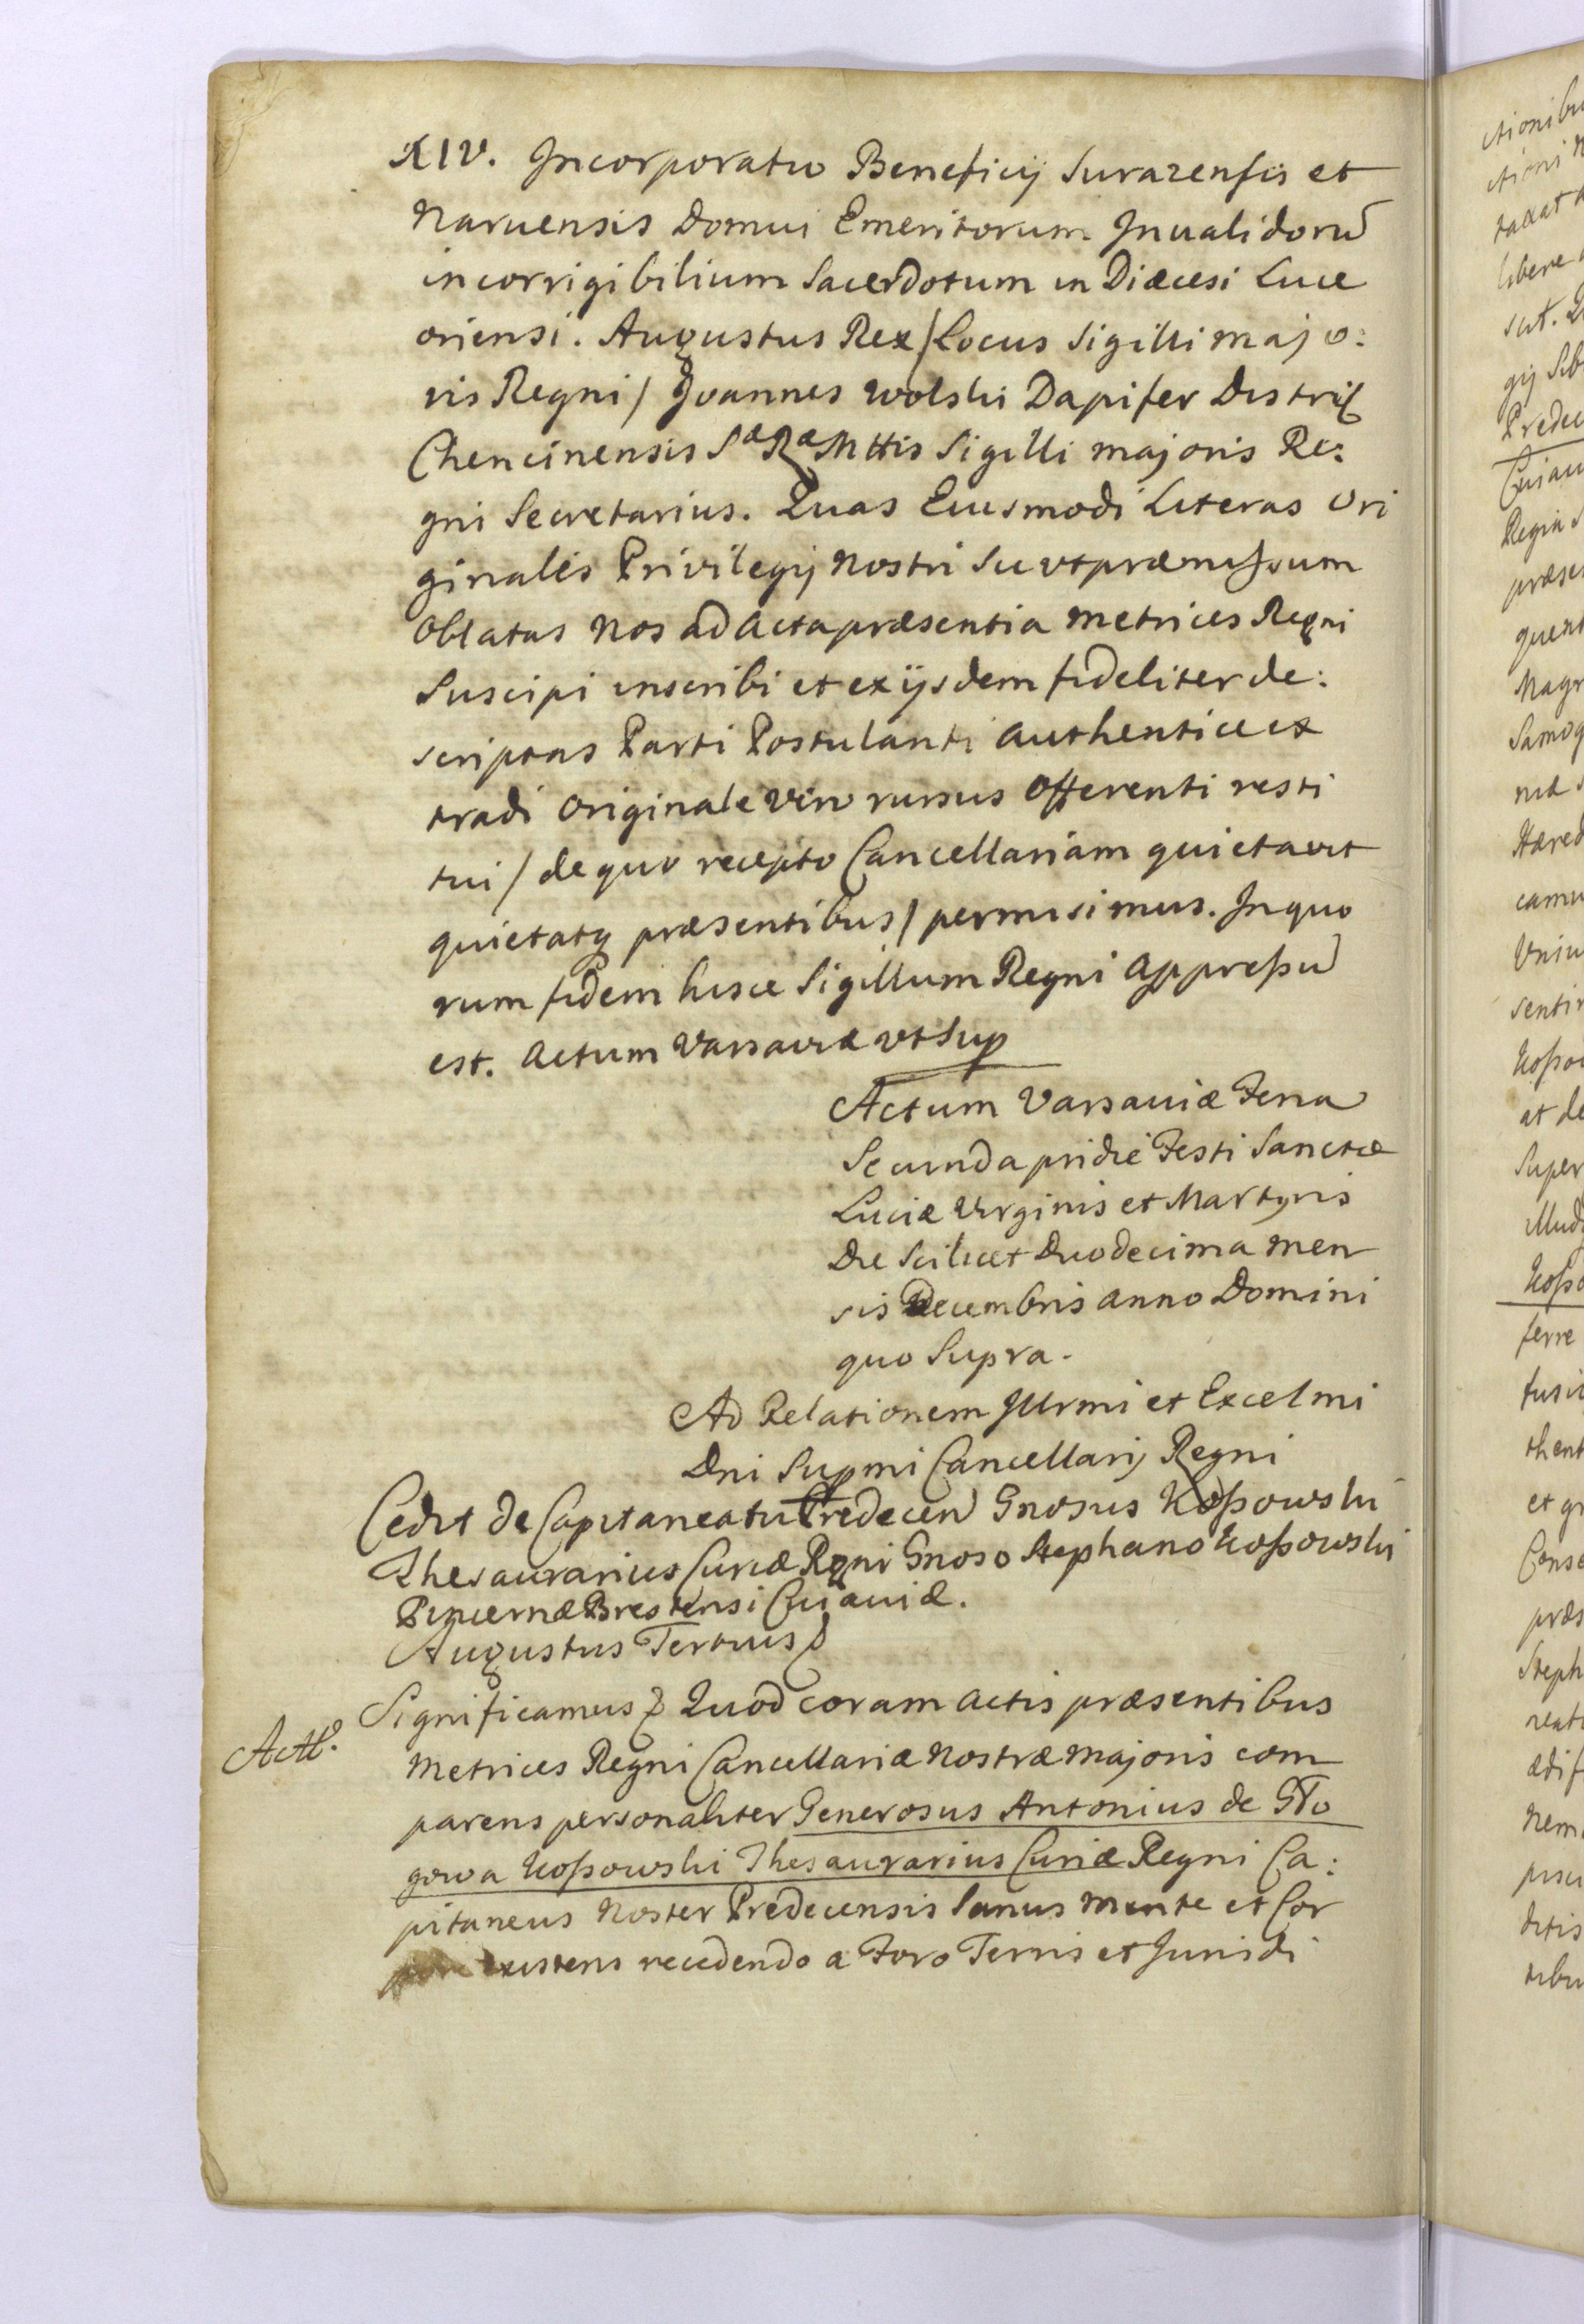 XIV. Incorporatio Beneficij Surazensis et
Naruensis Domui Emeritorum Inualidorũ
incorrigibilium Sacerdotum in Diæcesi Luce
oriensi. Augustus Rex / Locus Sigilli majo:
ris Regni / Joannes Wolski Dapifer Distric
Chencinensis Sæ Ræ Mttis Sigilli majoris Re:
gni Secretarius. Quas Eiusmodi Literas Ori
ginales Privilegij Nostri Sic vt præmissum
Oblatas Nos ad Acta præsentia Metrices Regni
Suscipi inscribi et ex ijsdem fideliter de:
scriptas Parti Postulanti authentice ex
tradi Originale vero rursus Offerenti resti
tui / de quo recepto Cancellariam quietavit
quietatq præsentibus / permisimus. In quo
rum fidem hisce Sigillum Regni Appressũ
est. Actum Varsaviæ vt Sup
Actum Varsauiæ Feria
Secunda pridie Festi Sanctæ
Luciæ Virginis et Martyris
Die Scilicet Duodecima Men
sis Decembris Anno Domini
quo Supra.
Ad Relationem Illrmi et Excelmi
Dni Supmi Cancellarij Regni
Cedit de Capitaneatu Predecen Gnosus Kossowski
Thesaurarius Curiæ Rgni Gnoso Stephano Kossowski
Pincernæ Brestensi Cujauiæ.
Augustus Tertius
Significamus Quod coram Actis præsentibus
Actl.
Metrices Regni Cancellariæ Nostræ Majoris com
parens personaliter Generosus Antonius de Glo
gowa Kossowski Thesaurarius Curiæ Regni Ca:
pitaneus Noster Predecensis Sanus Mente et Cor
pore existens recedendo a Foro Terris et Jurisdi
ctionibu
taxat
libere
Predec
Cuiau
Regia
præse
quent
Magn
Samog
Hæred
camu
Vniu
senti
Kossow
at de
Super
illud
Kosso
ferre
fusi
thent
et gr
Conse
præs
Steph
neat
ædif
nem
pisci
ditis